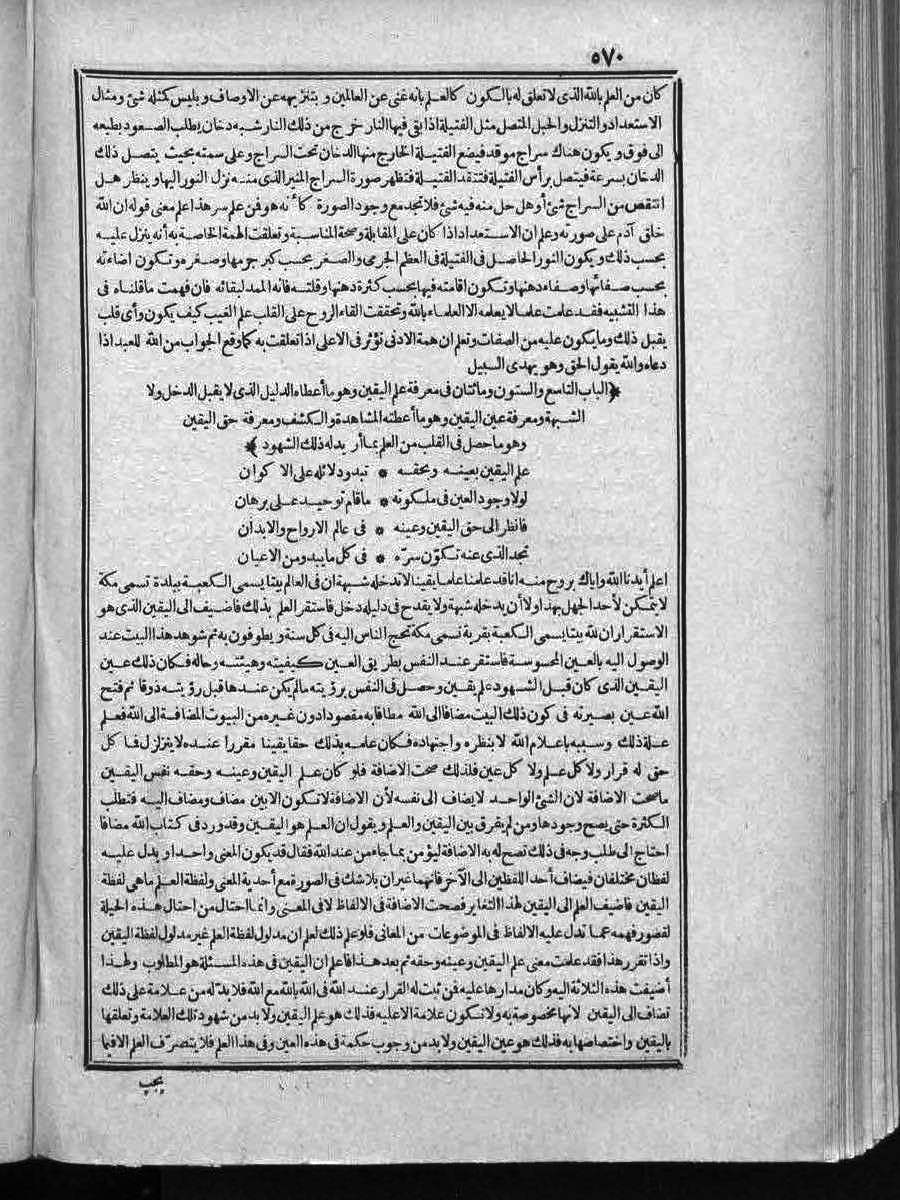 ٥٧٠
كان من العلم بالله الذى لا تعلق له بالكون كالعلم بانه غنى عن العالمين و بتنزيهه عن الاوصاف و بليس كمثله شئ ومثال
الاستعداد والتنزل والحبل المتصل مثل الفتيلة اذا بقى فيها النار خرج من ذلك النار شبه دخان يطلب الصعود بطبعه
الى فوق و يكون هناك سراج موقد فيضع الفتيلة الخارج منها الدخان تحت السراج وعلى سمته بحيث يتصل ذلك
الدخان بسرعة فيتصل برأس الفتيلة فتتقد الفتيلة فتظهر صورة السراج المنير الذى منه نزل النور اليها و ينظر هل
انتقص من السراج شئ أو هل حل منه فيه شئ فلا تجد مع وجود الصورة كأنه هو فن علم سر هذا علم معنى قوله ان الله
خلق آدم على صورته وعلم ان الاستعداد اذا كان على المقابلة وصحة المناسبة وتعلقت الهمة الخاصة به أنه ينزل عليه
بحسب ذلك و يكون النور الحاصل فى الفتيلة فى العظم الجرمى والصغر بحسب كبر جومها وصغره وتكون اضاءته
بحسب صفائها وصفاء دهنها وتكون اقامته فيها بحسب كثرة دهنها وقلته فانه الممد لبقائه فان فهمت ما قلناه فى
هذا التشبيه فقد علمت علما لا يعلمه الا العلماء بالله وتحققت القاء الروح على القلب علم الغيب كيف يكون وأى قلب
يقبل ذلك وما يكون عليه من الصفات وتعلم ان همة الادنى تؤثر فى الاعلى اذا تعلقت به كما وقع الجواب من الله للعبد اذا
دعاه والله يقول الحق وهو يهدى السبيل
﴿الباب التاسع والستون ومائتان فى معرفة علم اليقين وهو ما أعطاه الدليل الذى لا يقبل الدخل ولا
الشبهة ومعرفة عين اليقين وهو ما أعطته المشاهدة والكشف ومعرفة حق اليقين
وهو ما حصل فى القلب من العلم بما أريد له ذلك الشهود﴾
علم اليقين بعينه وبحقه * تبدو دلائله على الاكوان
لولا وجود العين فى ملكوته * ما قام توحيد على برهان
فانظر الى حق اليقين وعينه * فى عالم الارواح والابدان
تجد الذى عنه تكوّن سرّه * فى كل ما يبدو من الاعيان
اعلم أيدنا الله واياك بروح منه انا قد علمنا علما يقينا لا تدخله شبهة ان فى العالم بيتا يسمى الكعبة ببلدة تسمى مكة
لا يتمكن لأحد الجهل بهذا ولا أن يدخله شبهة ولا يقدح فى دليله دخل فاستقر العلم بذلك فاضيف الى اليقين الذى هو
الاستقرار ان لله بيتا يسمى الكعبة بقرية تسمى مكة تحج الناس اليه فى كل سنة و يطوفون به ثم شوهد هذا البيت عند
الوصول اليه بالعين المحسوسة فاستقر عند النفس بطريق العين كيفيته وهيئته وحاله فكان ذلك عين
اليقين الذى كان قبل الشهود علم يقين وحصل فى النفس برؤيته ما لم يكن عندها قبل رؤيته ذوقا ثم فتح
الله عين بصيرته فى كون ذلك البيت مضافا الى الله مطافا به مقصودا دون غيره من البيوت المضافة الى الله فعلم
علة ذلك وسببه باعلام الله لا بنظره واجتهاده فكان علمه بذلك حقا يقينا مقررا عنده لا يتزلزل فا كل
حق له قرار ولا كل علم ولا كل عين فلذلك صحت الاضافة فلو كان علم اليقين وعينه وحقه نفس اليقين
ما صحت الاضافة لان الشئ الواحد لا يضاف الى نفسه لأن الاضافة لا تكون الا بين مضاف ومضاف اليه فتطلب
الكثرة حتى يصح وجودها ومن لم يفرق بين اليقين والعلم و يقول ان العلم هو اليقين وقد ورد فى كتاب الله مضافا
احتاج الى طلب وجه فى ذلك تصح له به الاضافة ليؤمن بما جاء من عند الله فقال قد يكون المعنى واحدا و يدل عليه
لفظان مختلفان فيضاف أحد اللفظين الى الآخر فانهما غيران بلا شك فى الصورة مع أحدية المعنى ولفظة العلم ما هى لفظة
اليقين فاضيف العلم الى اليقين لهذا التغاير فصحت الاضافة فى الالفاظ لا فى المعنى وانما احتال من احتال هذه الحيلة
لقصور فهمه عما تدل عليه الالفاظ فى الموضوعات من المعانى فلو علم ذلك لعلم ان مدلول لفظة العلم غير مدلول لفظة اليقين
واذا تقرر هذا فقد علمت معنى علم اليقين وعينه وحقه ثم بعد هذا فاعلم ان اليقين فى هذه المسئلة هو المطلوب ولهذا
أضيفت هذه الثلاثة اليه وكان مدارها عليه فن ثبت له القرار عند الله فى الله بالله مع الله فلا بدّ له من علامة على ذلك
تضاف الى اليقين لانها مخصوصة به ولا تكون علامة الا عليه فذلك هو علم اليقين ولا بد من شهود تلك العلامة وتعلقها
باليقين واختصاصها به فذلك هو عين اليقين ولا بد من وجوب حكمة فى هذه العين وفى هذا العلم فلا يتصرّف العلم الا فيما
يجب